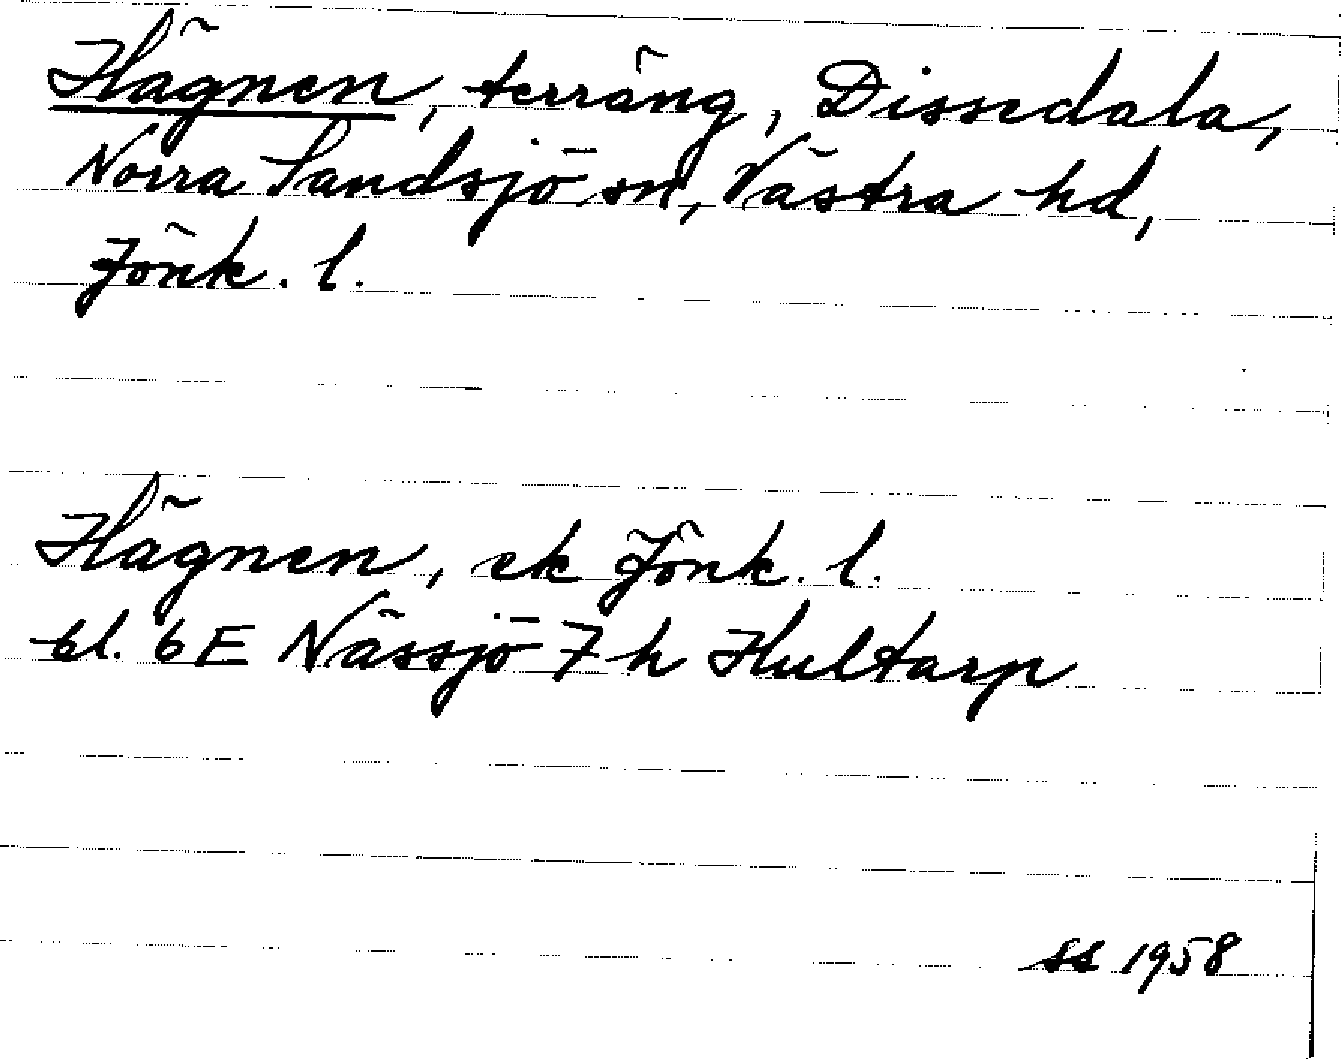 Hägnen, terräng, Dissedala,
Norra Sandsjö sn, Västra hd,
Jönk. l.
Hägnen, ek Jönk. l.
bl. 6E Nässjö 7h Hultarp
SS 1958